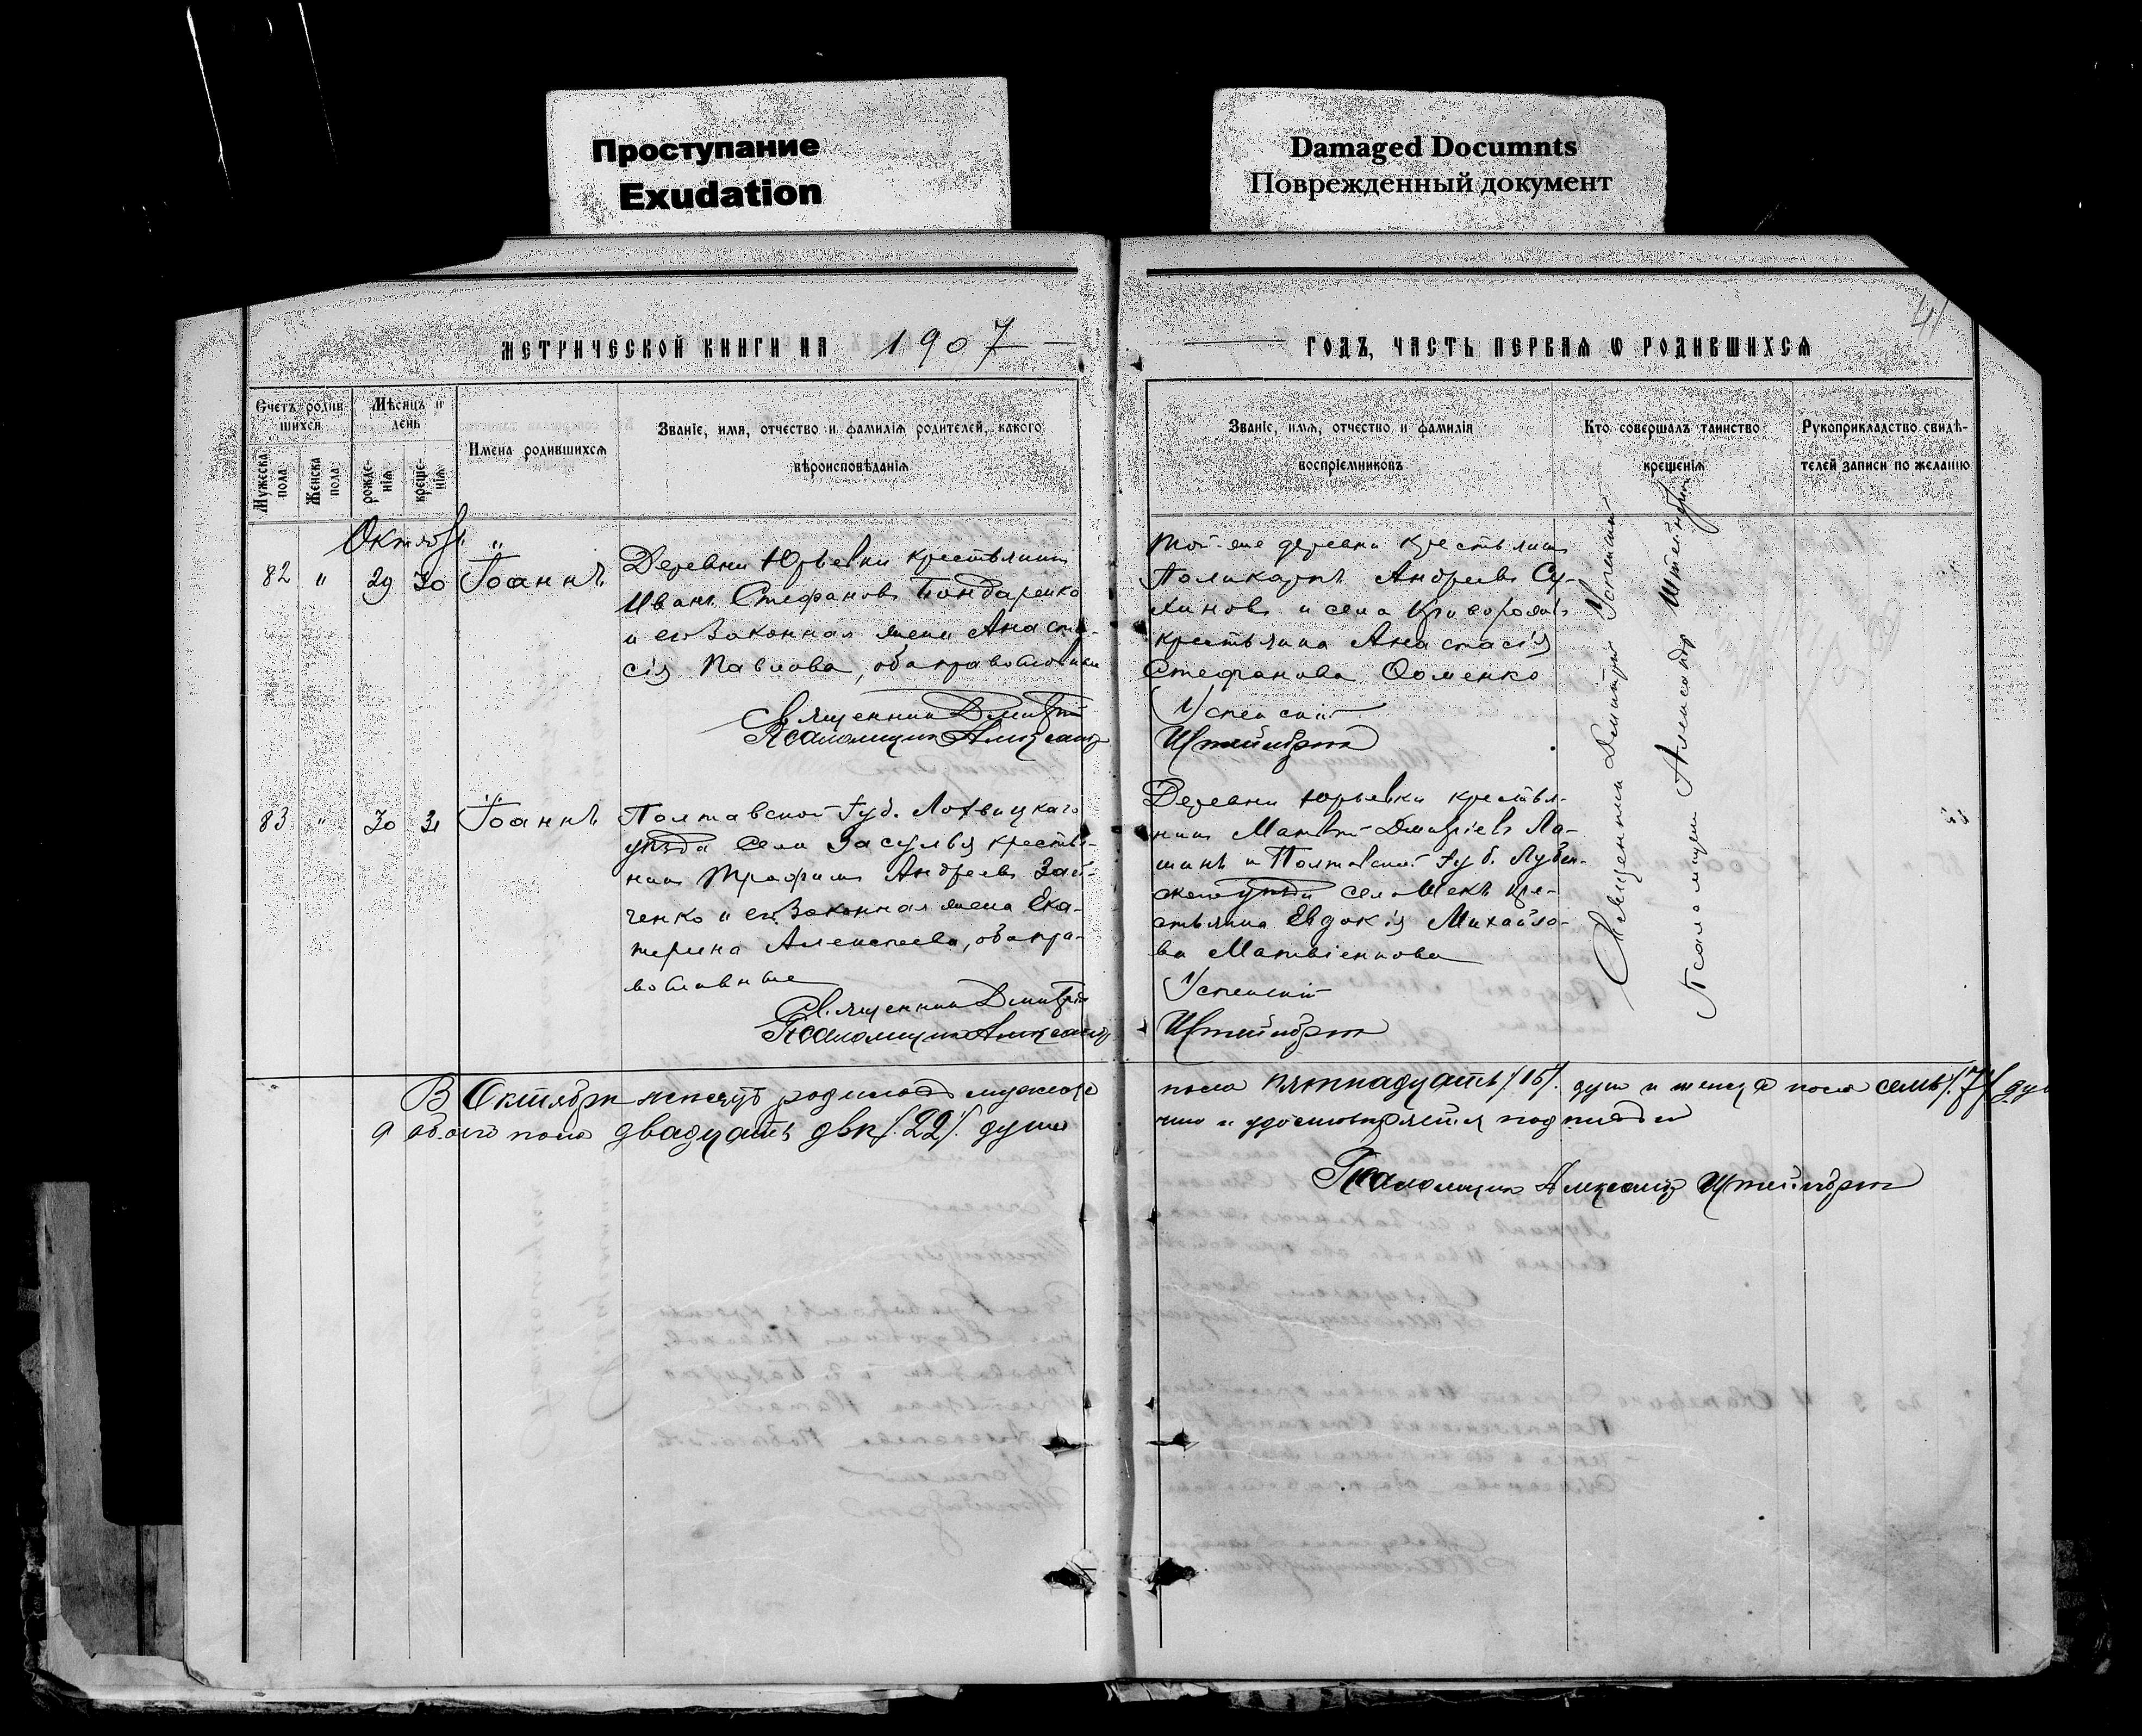 Проступание
Exudation
Damaged Documnts
Поврежденный документ
41
МЕТРИЧЕСКОЙ КНИГИ НА 1907
ГОДЪ, ЧАСТЬ ПЕРВАЯ Ѡ РОДИВШИХСЯ
Счетъ родив-
шихся
Мѣсяцъ и
день
Мужеска
пола
Женска
пола
рожде-
нія
креще-
нія
Имена родившихся
Званіе, имя, отчество и фамилія родителей, какого
вѣроисповѣданія
Званіе, имя, отчество и фамилія
воспріемниковъ
Кто совершалъ таинство
крещенія
Рукоприкладство свидѣ-
телей записи по желанію
Октябрь
82 " 29 30 Іоаннъ
Деревни Юрьевки крестьянинъ
Иванъ Стефановъ Бондаренко
и его законная жена Анаста-
сія Павлова, оба православные
Священникъ Дмитрій
Псаломщикъ Александръ
Той-же деревни крестьянинъ
Поликарпъ Андреевъ Су-
хиновъ и села
крестьянка Анастасія
Стефанова Фоменко
Успенскій
Штейнбрт
Священникъ Димитрій Успенскій
Псаломщикъ Александръ
83 " 30 31 Іоаннъ
Полтавской губ. Лохвицкаго
уѣзда села Засулья крестья-
нинъ Трофимъ Андреевъ Зай-
ченко и его законная жена Ека-
терина Алексеева, оба пра-
вославные
Священникъ Дмитрій
Псаломщикъ Александръ
Деревни Юрьевки крестья-
нинъ Матвѣй Дмитріевъ Ла-
шинъ и Полтавской губ. Лубен-
скаго уѣзда кре-
стьянка Евдокія Михайло-
ва Матвіенкова
Успенскій
В Октябрѣ мѣсяцѣ родилось мужска
пола пятнадцать /15/. душъ и женска пола семь /.7/. ду
а обоего пола двадцать двѣ /.22/. души
что и удостовѣряемъ подписьми
Псаломщикъ Александръ